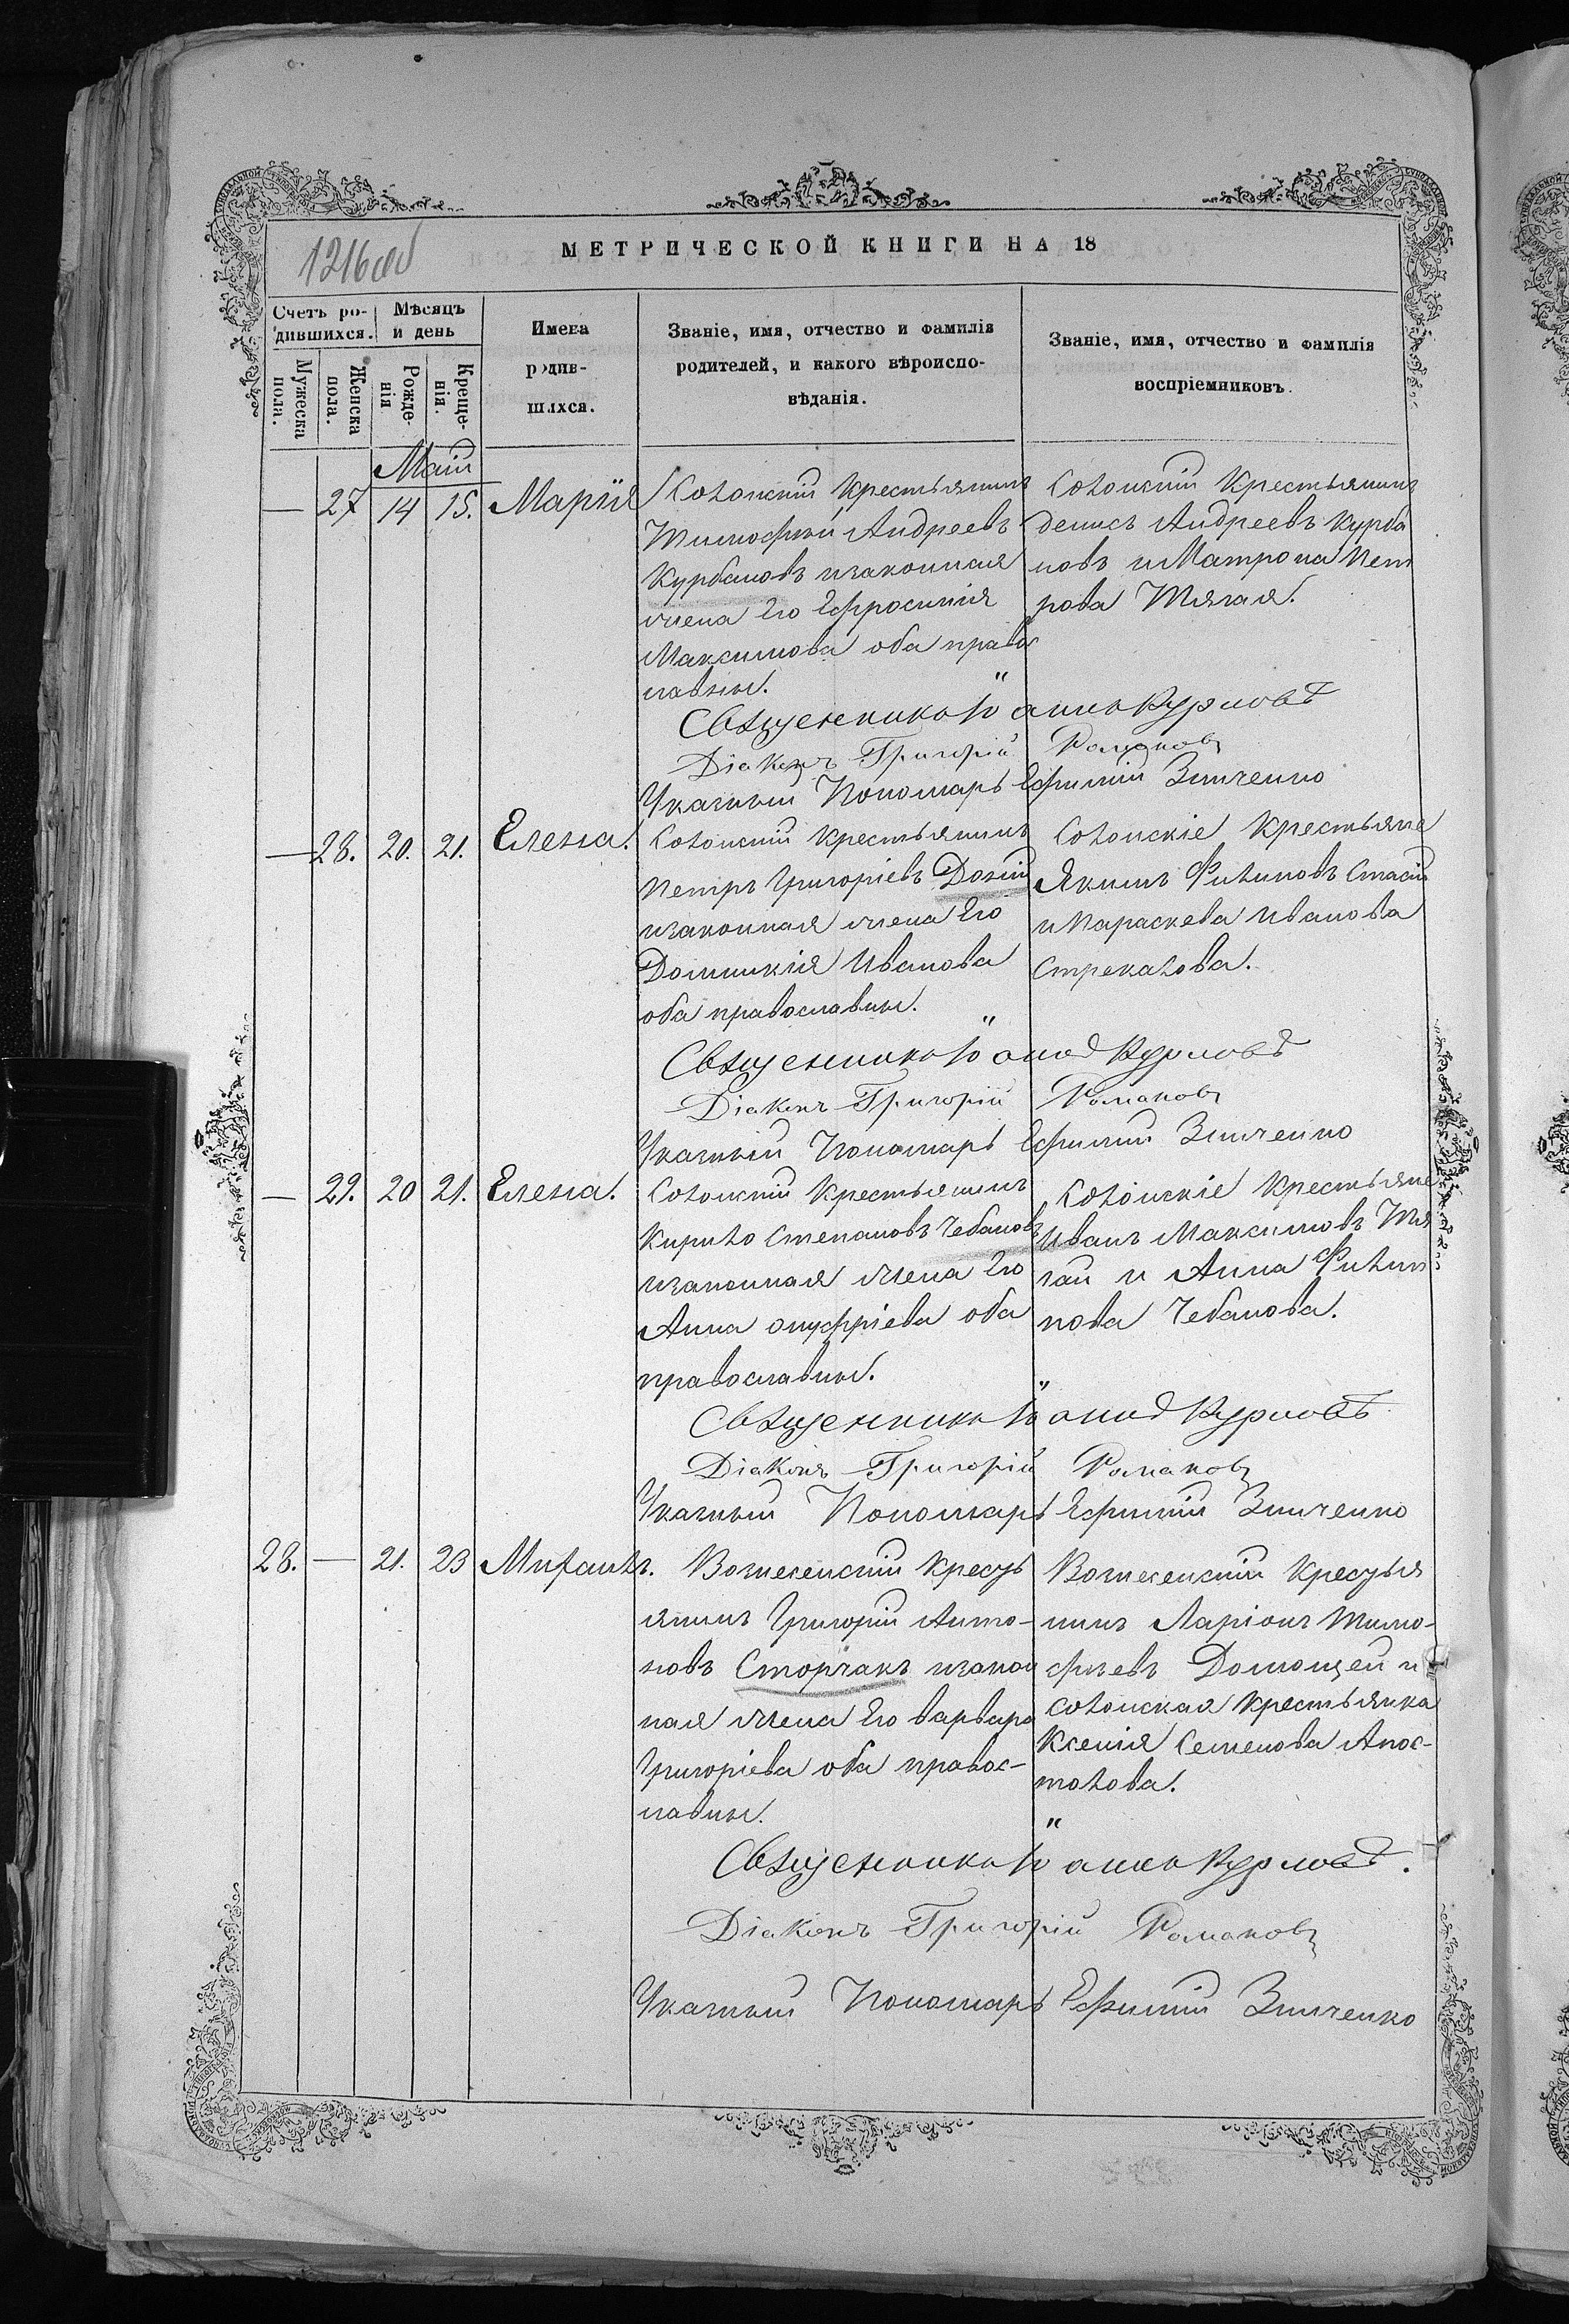 1216об
МЕТРИЧЕСКОЙ КНИГИ НА 18
Счетъ ро-
дившихся.
Мѣсяцъ
и день
Мужеска
пола.
Женска
пола.
Рожде-
нія
Креще-
нія.
Имена
родив-
шихся.
Званіе, имя, отчество и фамилія
родителей, и какого вѣроиспо-
вѣданія.
Званіе, имя, отчество и фамилія
воспріемниковъ.
Маій
— 27 14 15. Марія
Солонскій Крестьянинъ
Тимофѣй Андреевъ
Курбановъ изаконная
жена Его Ефросинія
Максимова оба правос
лавные.
Солонскій Крестьянинъ
Денисъ Андреевъ Курба
новъ и Матрона Пет
рова Тягая.
Священникъ Іоаннъ Курловъ
Діаконъ Григорій Романовъ
Указный Пономарь Ефимій Зинченко
— 28. 20. 21. Елена.
Солонскій Крестьянинъ
Петръ Григоріевъ Дозій
изаконная жена Его
Домникія Иванова
оба православные.
Солонскіе Крестьяне
Якимъ Филиповъ Стасій
и Параскева Иванова
Стрекалова.
Священникъ Іоаннъ Курловъ
Діаконъ Григорій Романовъ
Указный Пономарь Ефимій Зинченко
— 29. 20 21. Елена.
Солонскій Крестьянинъ
Кирило Степановъ Чебановъ
изаконная жена Его
Анна Онуфріева оба
православные.
Солонскіе Крестьяне
Иванъ Максимовъ Тя
гай и Анна Филип
пова Чебанова.
Священникъ Іоаннъ Курловъ
Діаконъ Григорій Романовъ
Указный Пономарь Ефимій Зинченко
28. — 21. 23 Михаилъ.
Вознесенскій Кресть
янинъ Григорій Анто-
новъ Сторчакъ изакон
ная жена Его Варвара
Григоріева оба правос-
лавные.
Вознесенскій Крестья
нинъ Ларіонъ Тимо-
фѣевъ Домощей и
Солонская Крестьянка
Ксенія Семенова Апос-
толова.
Священникъ Іоаннъ Курловъ.
Діаконъ Григорій Романовъ
Указный Пономарь Ефимій Зинченко